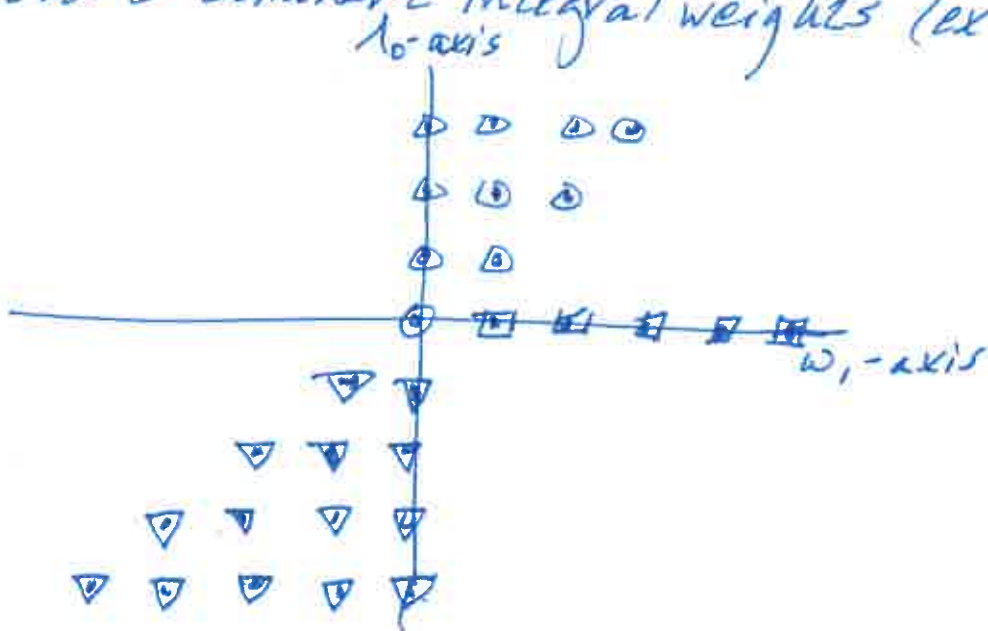 integral weights (ex
Λ₀-axis
ω₁-axis